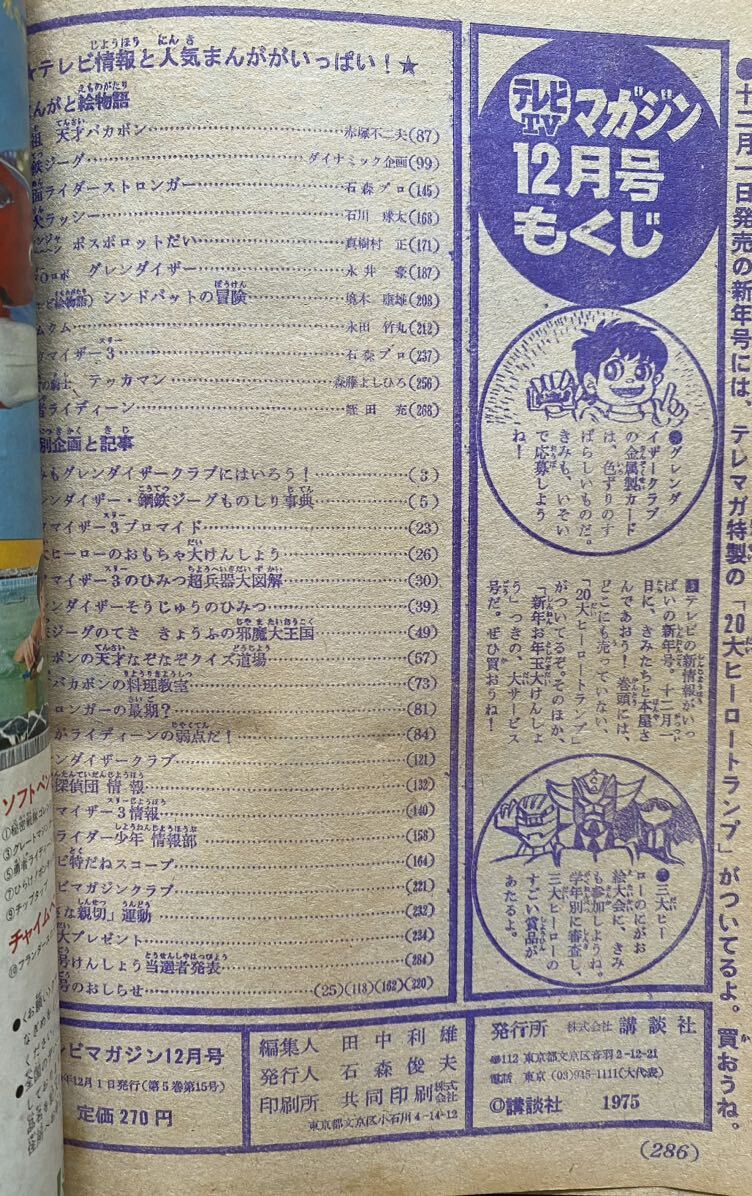 ●十二月一日発売の新年号には、テレマガ特製の「20大ヒーロートランプ」がついてるよ。買おうね。
テレビTVマガジン
12月号
もくじ
●グレンダ
イザークラブ
の金属製カード
は、色ずりのす
ばらしいものだ。
きみも、いそい
で応募しよう
ね！
テレビの新情報がいっ
ぱいの新年号。十二月一
日に、きみたちと本屋さ
んであおう！　巻頭には、
どこにも売っていない、
「20大ヒーロートランプ」
がついてるぞ。そのほか、
「新年お年玉大けんしょ
う」つきの、大サービス
号だ。ぜひ買おうね！
●三大ヒー
ローのにがお
絵大会に、きみ
も参加しようね。
学年別に審査し、
三大ヒーローの
すごい賞品が
あたるよ。
★テレビ情報と人気まんががいっぱい！★
んがと絵物語
祖 天才バカボン……赤塚不二夫(87)
鉄ジーグ……ダイナミック企画(99)
面ライダーストロンガー……石森プロ(145)
犬ラッシー……石川球太(168)
ボスボロットだい……真樹村正(171)
ロボ グレンダイザー……永井豪(187)
ビ絵物語) シンドバットの冒険……境木康雄(208)
ムクム……永田竹丸(212)
マイザー3……石森プロ(237)
の騎士 テッカマン……森藤よしひろ(256)
者ライディーン……蛭田充(268)
別企画と記事
みもグレンダイザークラブにはいろう！……(3)
ンダイザー・鋼鉄ジーグものしり事典……(5)
マイザー3ブロマイド……(23)
大ヒーローのおもちゃ大けんしょう……(26)
マイザー3のひみつ超兵器大図解……(30)
ンダイザーそうじゅうのひみつ……(39)
ジーグのてき きょうふの邪魔大王国……(49)
ボンの天才なぞなぞクイズ道場……(57)
バカボンの料理教室……(73)
ロンガーの最期？……(81)
がライディーンの弱点だ！……(84)
ンダイザークラブ……(121)
探偵団情報……(132)
マイザー3情報……(140)
ライダー少年情報部……(158)
ビ特だねスコープ……(164)
ビマガジンクラブ……(221)
さな親切」運動……(232)
大プレゼント……(234)
号けんしょう当選者発表……(284)
号のおしらせ……(25)(118)(162)(220)
レビマガジン12月号
年12月1日発行(第5巻第15号)
定価270円
編集人 田中利雄
発行人 石森俊夫
印刷所 共同印刷株式会社
東京都文京区小石川4-14-12
発行所 株式会社 講談社
112 東京都文京区音羽2-12-21
電話 東京(03)945-1111(大代表)
©講談社 1975
(286)
ソフトペン
③グレートマジン
⑤勇者ライディー
⑦ひらけ！ポンキ
⑨チップタップ
チャイムペ
⑩フランダース
●〈お願い〉